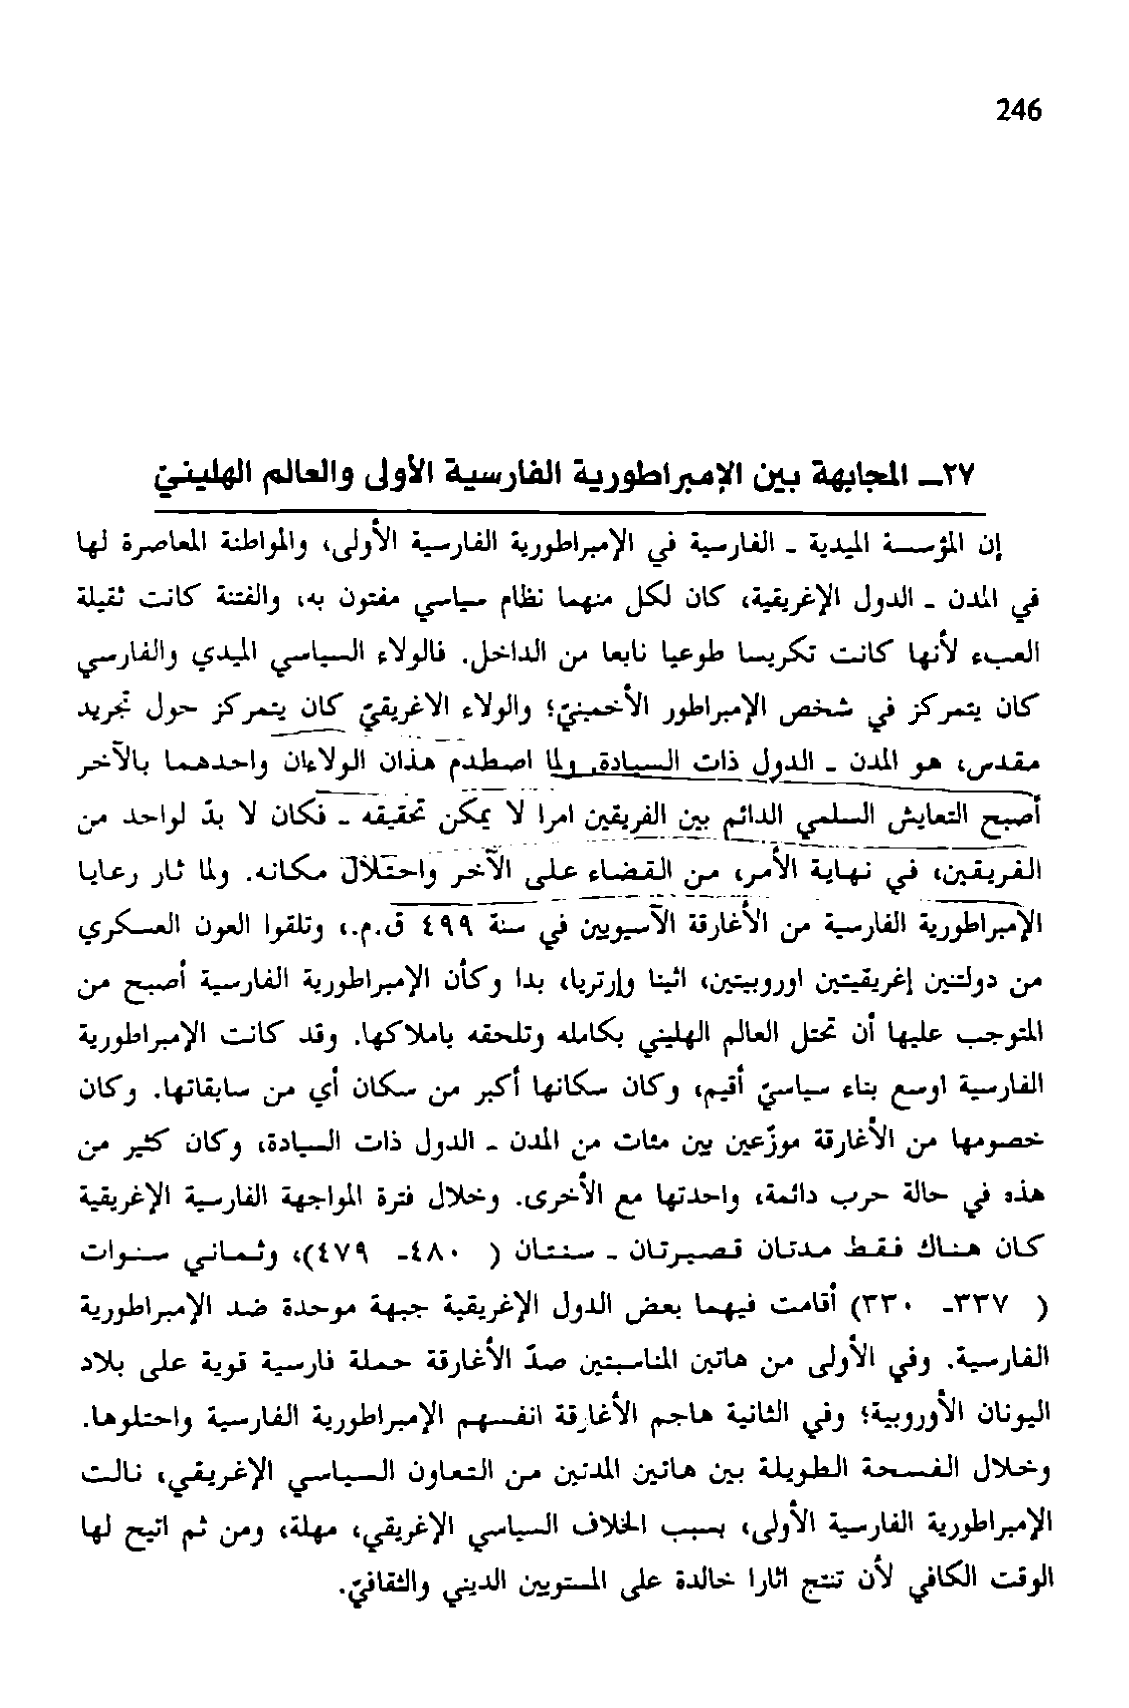 246
٢٧ــ المجابهة بين الإمبراطورية الفارسية الأولى والعالم الهلينيّ
إن المؤسسة الميدية - الفارسية في الإمبراطورية الفارسية الأولى، والمواطنة المعاصرة لها
في المدن - الدول الإغريقية، كان لكل منهما نظام سياسي مفتون به، والفتنة كانت ثقيلة
العبء لأنها كانت تكريسا طوعيا نابعا من الداخل. فالولاء السياسي الميدي والفارسي
كان يتمركز في شخص الإمبراطور الأخمينيّ؛ والولاء الاغريقيّ كان يتمركز حول تجريد
مقدس، هو المدن - الدول ذات السيادة، ولما اصطدم هذان الولاءان واحدهما بالآخر
أصبح التعايش السلمي الدائم بين الفريقين امرا لا يمكن تحقيقه - فكان لا بدّ لواحد من
الفريقين، في نهاية الأمر، من القضاء على الآخر واحتلال مكانه. ولما ثار رعايا
الإمبراطورية الفارسية من الأغارقة الآسيويين في سنة ٤٩٩ ق.م.، وتلقوا العون العسكري
من دولتين إغريقيتين اوروبيتين، اثينا وإرتريا، بدا وكأن الإمبراطورية الفارسية أصبح من
المتوجب عليها أن تحتل العالم الهليني بكامله وتلحقه باملاكها. وقد كانت الإمبراطورية
الفارسية اوسع بناء سياسيّ أقيم، وكان سكانها أكبر من سكان أي من سابقاتها. وكان
خصومها من الأغارقة موزّعين بين مئات من المدن - الدول ذات السيادة، وكان كثير من
هذه في حالة حرب دائمة، واحدتها مع الأخرى. وخلال فترة المواجهة الفارسية الإغريقية
كان هناك فقط مدتان قصيرتان - سنتان ( ٤٨٠- ٤٧٩)، وثماني سنوات
( ٣٣٧- ٣٣٠) أقامت فيهما بعض الدول الإغريقية جبهة موحدة ضد الإمبراطورية
الفارسية. وفي الأولى من هاتين المناسبتين صدّ الأغارقة حملة فارسية قوية على بلاد
اليونان الأوروبية؛ وفي الثانية هاجم الأغارقة انفسهم الإمبراطورية الفارسية واحتلوها.
وخلال الفسحة الطويلة بين هاتين المدتين من التعاون السياسي الإغريقي، نالت
الإمبراطورية الفارسية الأولى، بسبب الخلاف السياسي الإغريقي، مهلة، ومن ثم اتيح لها
الوقت الكافي لأن تنتج اثارا خالدة على المستويين الديني والثقافيّ.